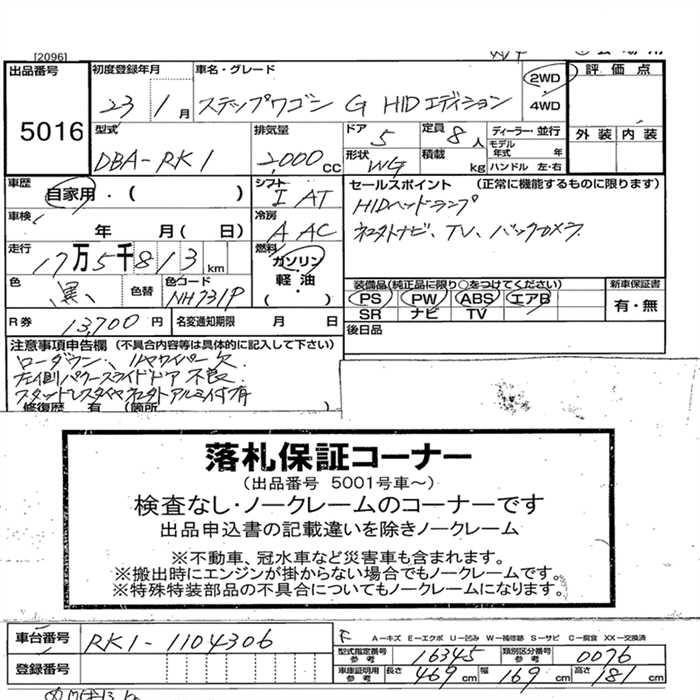 [2096]
出品番号 初度登録年月 車名・グレード 2WD 評価点
5016 23 1月 ステップワゴン G HIDエディション 4WD
外装 内装
型式 排気量 ドア 5 定員 8人 ディーラー・並行
DBA-RK1 2,000cc 形状 WG 積載 kg モデル年式 年 ハンドル 左・右
車歴 自家用・( ) シフト I AT セールスポイント (正常に機能するものに限ります)
車検 年 月(日) 冷房 AAC HIDヘッドランプ
社外ナビ、TV、バックカメラ
走行 17万5千813km 燃料 ガソリン 軽油 ( )
色 黒 色替 色コード NH731P
装備品(純正品に限り○をつけてください) 新車保証書
PS PW ABS エアB 有・無
SR ナビ TV
R券 13,700円 名変通知期限 月 日 後日品
注意事項申告欄 (不具合内容等は具体的に記入して下さい)
ローダウン、リヤワイパー欠
左側パワースライドドア不良
スタッドレスタイヤ社外アルミ付有
修復歴 有 (箇所
落札保証コーナー
(出品番号 5001号車〜)
検査なし・ノークレームのコーナーです
出品申込書の記載違いを除きノークレーム
※不動車、冠水車など災害車も含まれます。
※搬出時にエンジンが掛からない場合でもノークレームです。
※特殊特装部品の不具合についてもノークレームになります。
車台番号 RK1-1104306
F A－キズ E－エクボ U－凹み W－補修跡 S－サビ C－腐食 XX－交換済
型式指定番号 参考 16345 類別区分番号 参考 0076
登録番号
車庫証明用 参考 長さ 469cm 幅 169cm 高さ 181cm